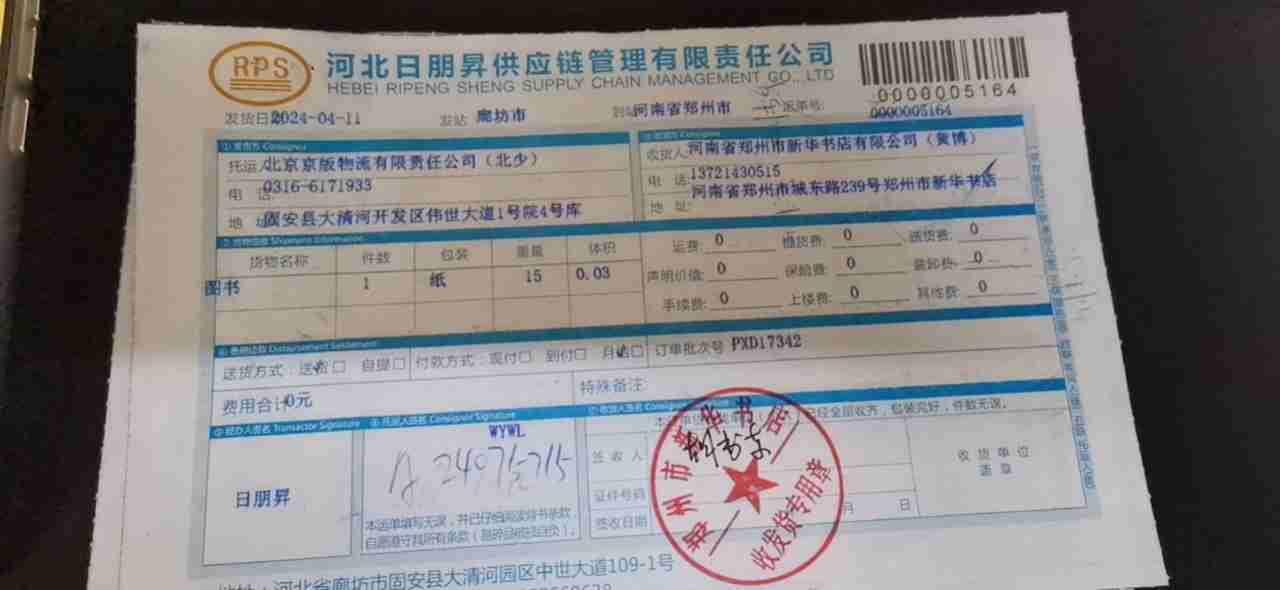 RPS
河北日朋昇供应链管理有限责任公司
HEBEI RIPENG SHENG SUPPLY CHAIN MANAGEMENT CO., LTD
0000005164
发货日期 2024-04-11 发站 廊坊市 到站 河南省郑州市 运单号: 0000005164
托运人 北京京版物流有限责任公司(北少)
电 话: 0316-6171933
地 址: 固安县大清河开发区伟世大道1号院4号库
收货人 河南省郑州市新华书店有限公司(黄博)
电 话: 13721430515
地 址: 河南省郑州市城东路239号郑州市新华书店
货物名称 件数 包装 重量 体积
图书 1 纸 15 0.03
运费: 0 提货费: 0 送货费: 0
声明价值: 0 保险费: 0 装卸费: 0
手续费: 0 上楼费: 0 其他费: 0
送货方式: 送货□ 自提□ 付款方式: 现付□ 到付□ 月结□ 订单批次号 PXD17342
费用合计: 0元
特殊备注:
经办人签名 Transactor Signature
日朋昇
托运人签名 Consignor Signature
WYWL
本运单填写无误,并已仔细阅读背书条款,
签收人
证件号码
签收日期 月 日
已经全部收齐,包装完好,件数无误。
收货单位
盖章
郑州市新华书店
收发货专用章
地址:河北省廊坊市固安县大清河园区中世大道109-1号